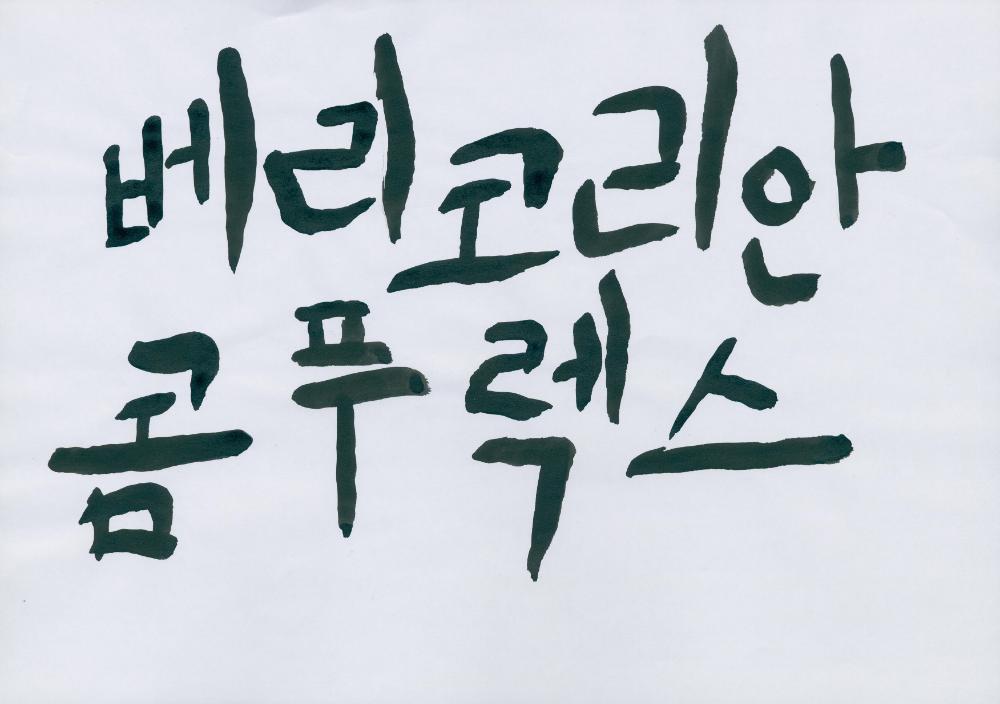 베리코리안
콤푸렉스